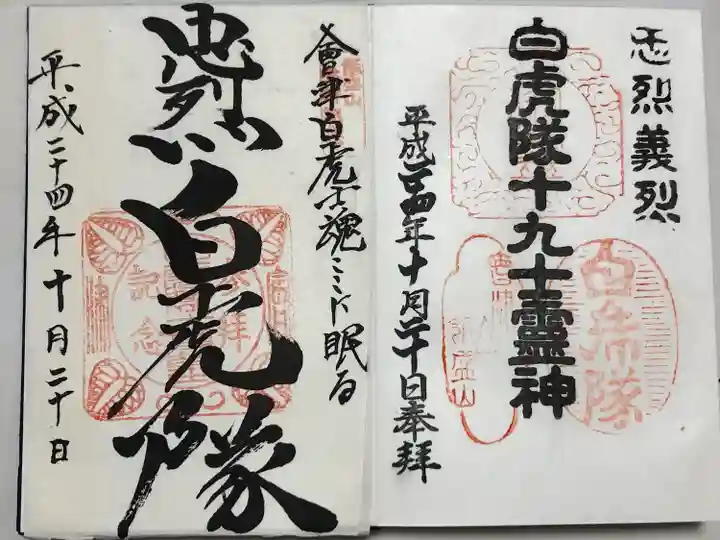 忠烈義烈
白虎隊十九士霊神
平成廿四年十月二十日奉拝
白虎隊
飯盛山
會津白虎士魂ここに眠る
忠烈 白虎隊
平成二十四年十月二十日
奉拝
記念